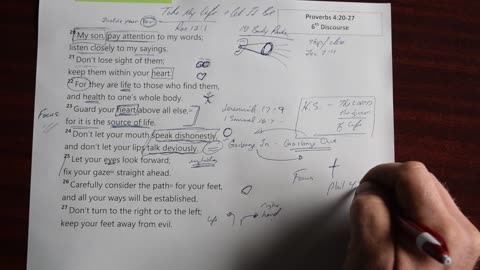 Take My Life & Let It Be
Proverbs 4:20-27
6th Discourse
20 My son, pay attention to my words;
listen closely to my sayings.
21 Don't lose sight of them;
keep them within your heart.
22 For they are life to those who find them,
and health to one's whole body.
23 Guard your heart above all else,
for it is the source of life.
24 Don't let your mouth speak dishonestly,
and don't let your lips talk deviously.
25 Let your eyes look forward;
fix your gaze straight ahead.
26 Carefully consider the path for your feet,
and all your ways will be established.
27 Don't turn to the right or to the left;
keep your feet away from evil.
Focus
Rom 12:1
Jeremiah 17:9
1 Samuel 16:7
Garbage In - Garbage Out
Focus
Phil 4
right
hand